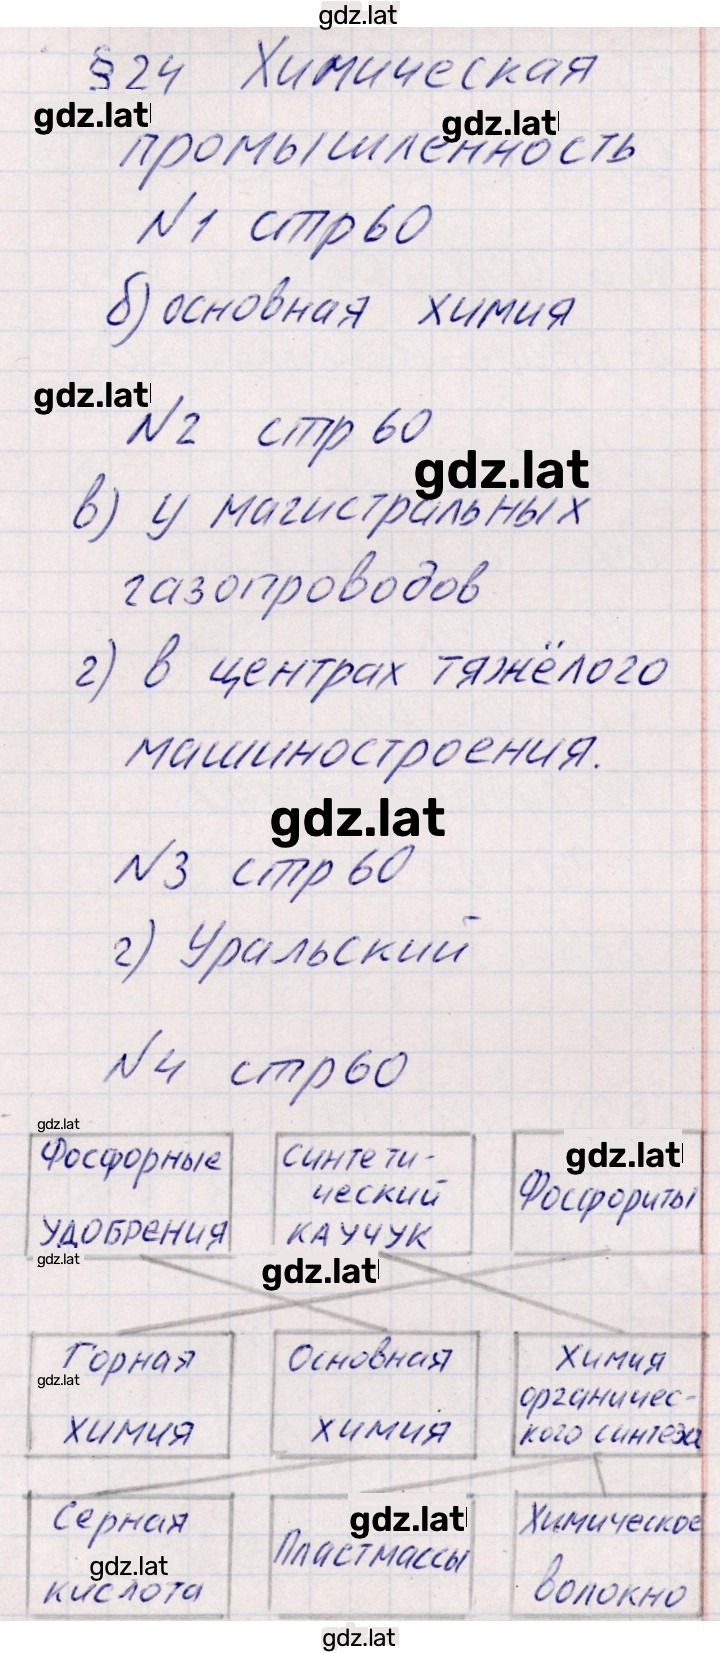 gdz.lat
§24 Химическая
gdz.lat
gdz.lat
промышленность
№1 стр 60
б) основная химия
gdz.lat
№2 стр 60
gdz.lat
в) у магистральных
газопроводов
г) в центрах тяжёлого
машиностроения.
gdz.lat
№3 стр 60
г) Уральский
№4 стр 60
gdz.lat
Фосфорные
удобрения
gdz.lat
Синтети-
ческий
каучук
gdz.lat
Фосфориты
gdz.lat
Горная
gdz.lat
химия
Основная
химия
Химия
органичес-
кого синтеза
Серная
gdz.lat
кислота
gdz.lat
Пластмассы
Химическое
волокно
gdz.lat